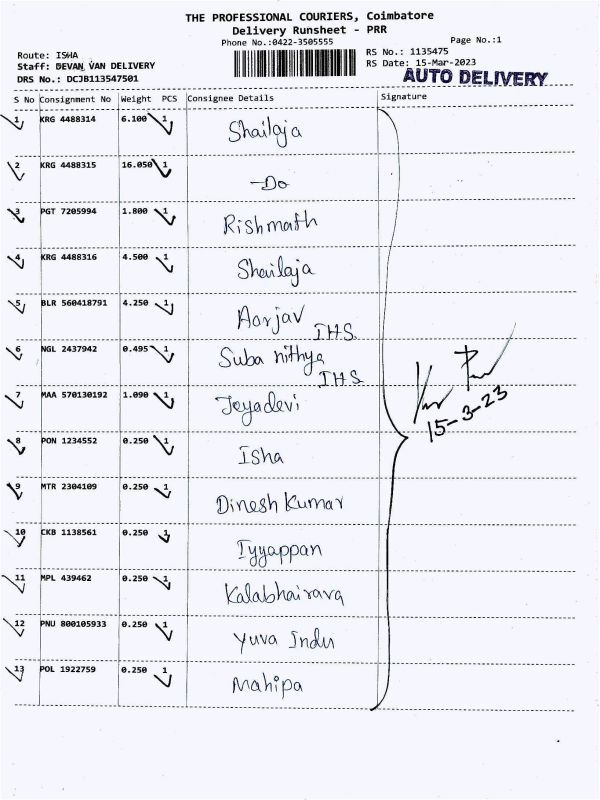 THE PROFESSIONAL COURIERS, Coimbatore
Delivery Runsheet - PRR
Phone No.:0422-3505555
Page No.:1
Route: ISHA
RS No.: 1135475
Staff: DEVAN VAN DELIVERY
RS Date: 15-Mar-2023
DRS No.: DCJB113547501
AUTO DELIVERY
S No Consignment No Weight PCS Consignee Details Signature
1 KRG 4488314 6.100 1 Shailaja
2 KRG 4488315 16.050 1 -Do
3 PGT 7205994 1.800 1 Rishmath
4 KRG 4488316 4.500 1 Shailaja
5 BLR 560418791 4.250 1 Aarjav
I.H.S.
6 NGL 2437942 0.495 1 Suba nithya
I.H.S.
7 MAA 570130192 1.090 1 Jeyadevi
15-3-23
8 PON 1234552 0.250 1 Isha
9 MTR 2304109 0.250 1 Dinesh Kumar
10 CKB 1138561 0.250 1 Iyyappan
11 MPL 439462 0.250 1 Kalabhairava
12 PNU 800105933 0.250 1 Yuva Indu
13 POL 1922759 0.250 1 Mahipa